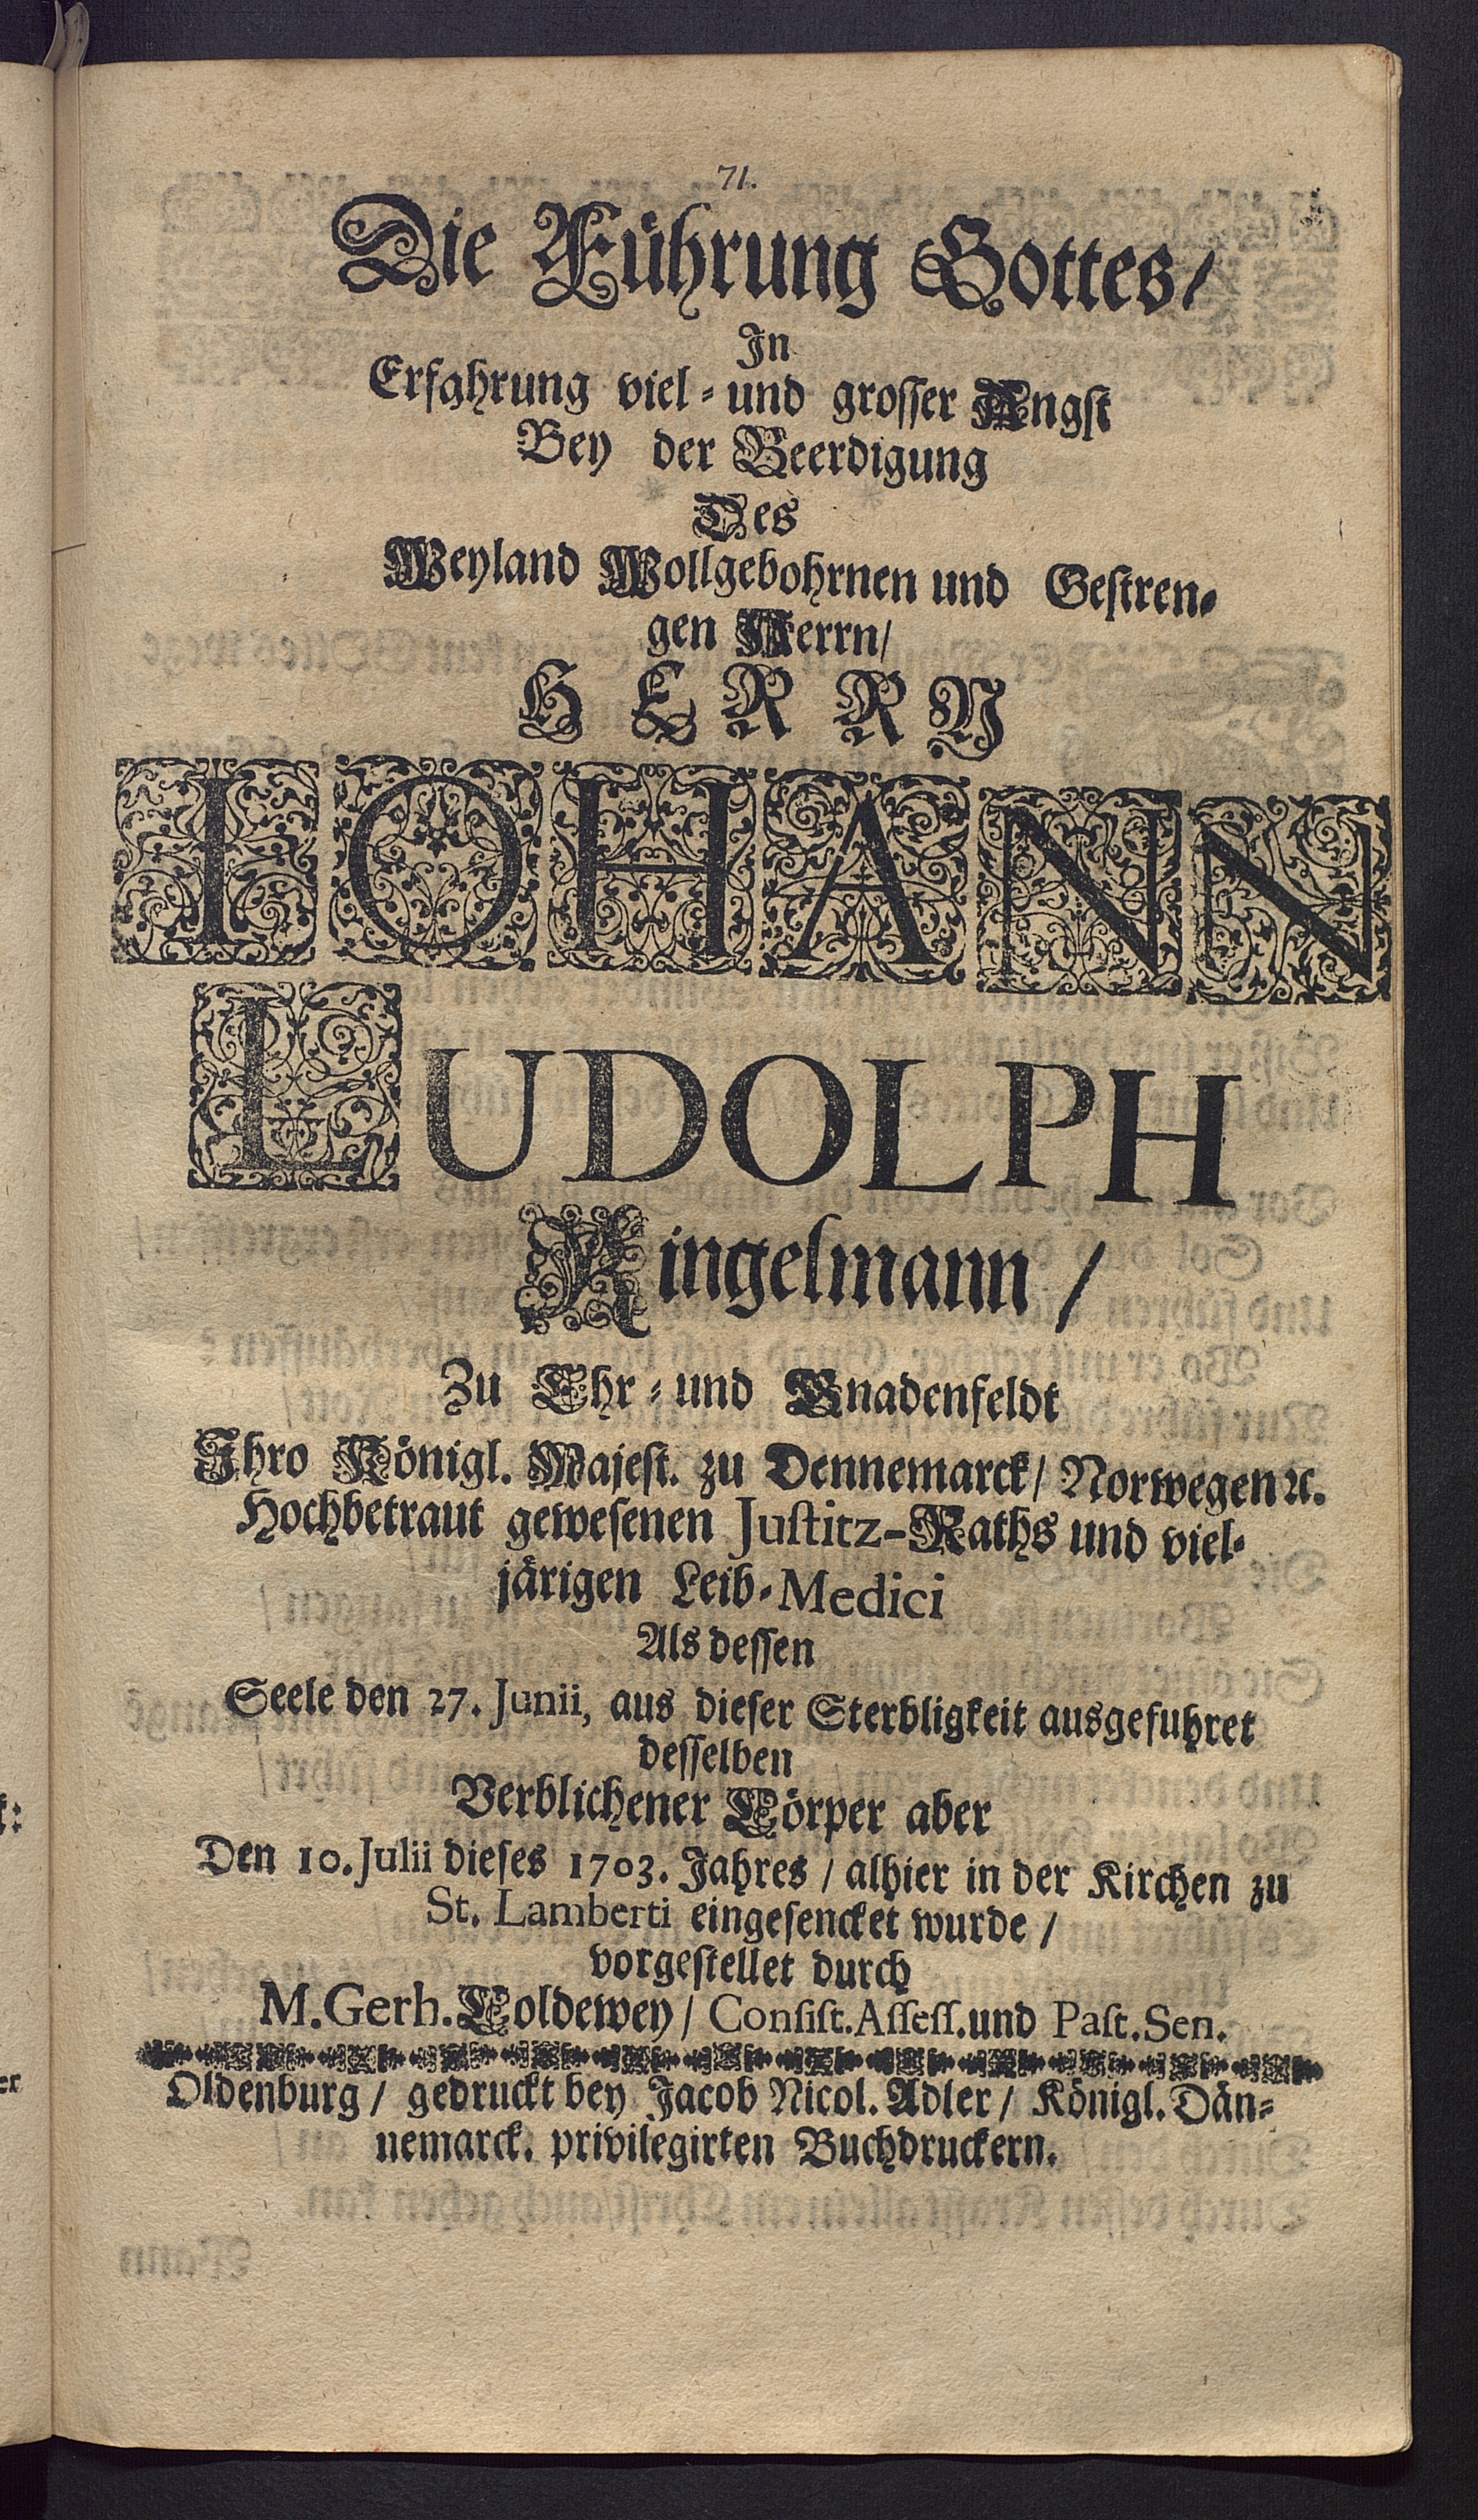 71.
Die Führung Gottes/
In
Erfahrung viel- und grosser Angst
Bey der Beerdigung
Des
Weyland Wollgebohrnen und Gestren-
gen Herrn/
HERRN
IOHANN
LUDOLPH
Ringelmann/
Zu Ehr- und Gnadenfeldt
Ihro Königl. Majest. zu Dennemarck/ Norwegen ꝛc.
Hochbetraut gewesenen Justitz-Raths und viel-
järigen Leib-Medici
Als dessen
Seele den 27. Junii, aus dieser Sterbligkeit ausgefuhret
desselben
Verblichener Cörper aber
Den 10. Julii dieses 1703. Jahres / alhier in der Kirchen zu
St. Lamberti eingesencket wurde /
vorgestellet durch
M. Gerh. Coldewey/ Consist. Assess. und Past. Sen.
Oldenburg / gedruckt bey Jacob Nicol. Adler/ Königl. Dän-
nemarck. privilegirten Buchdruckern.